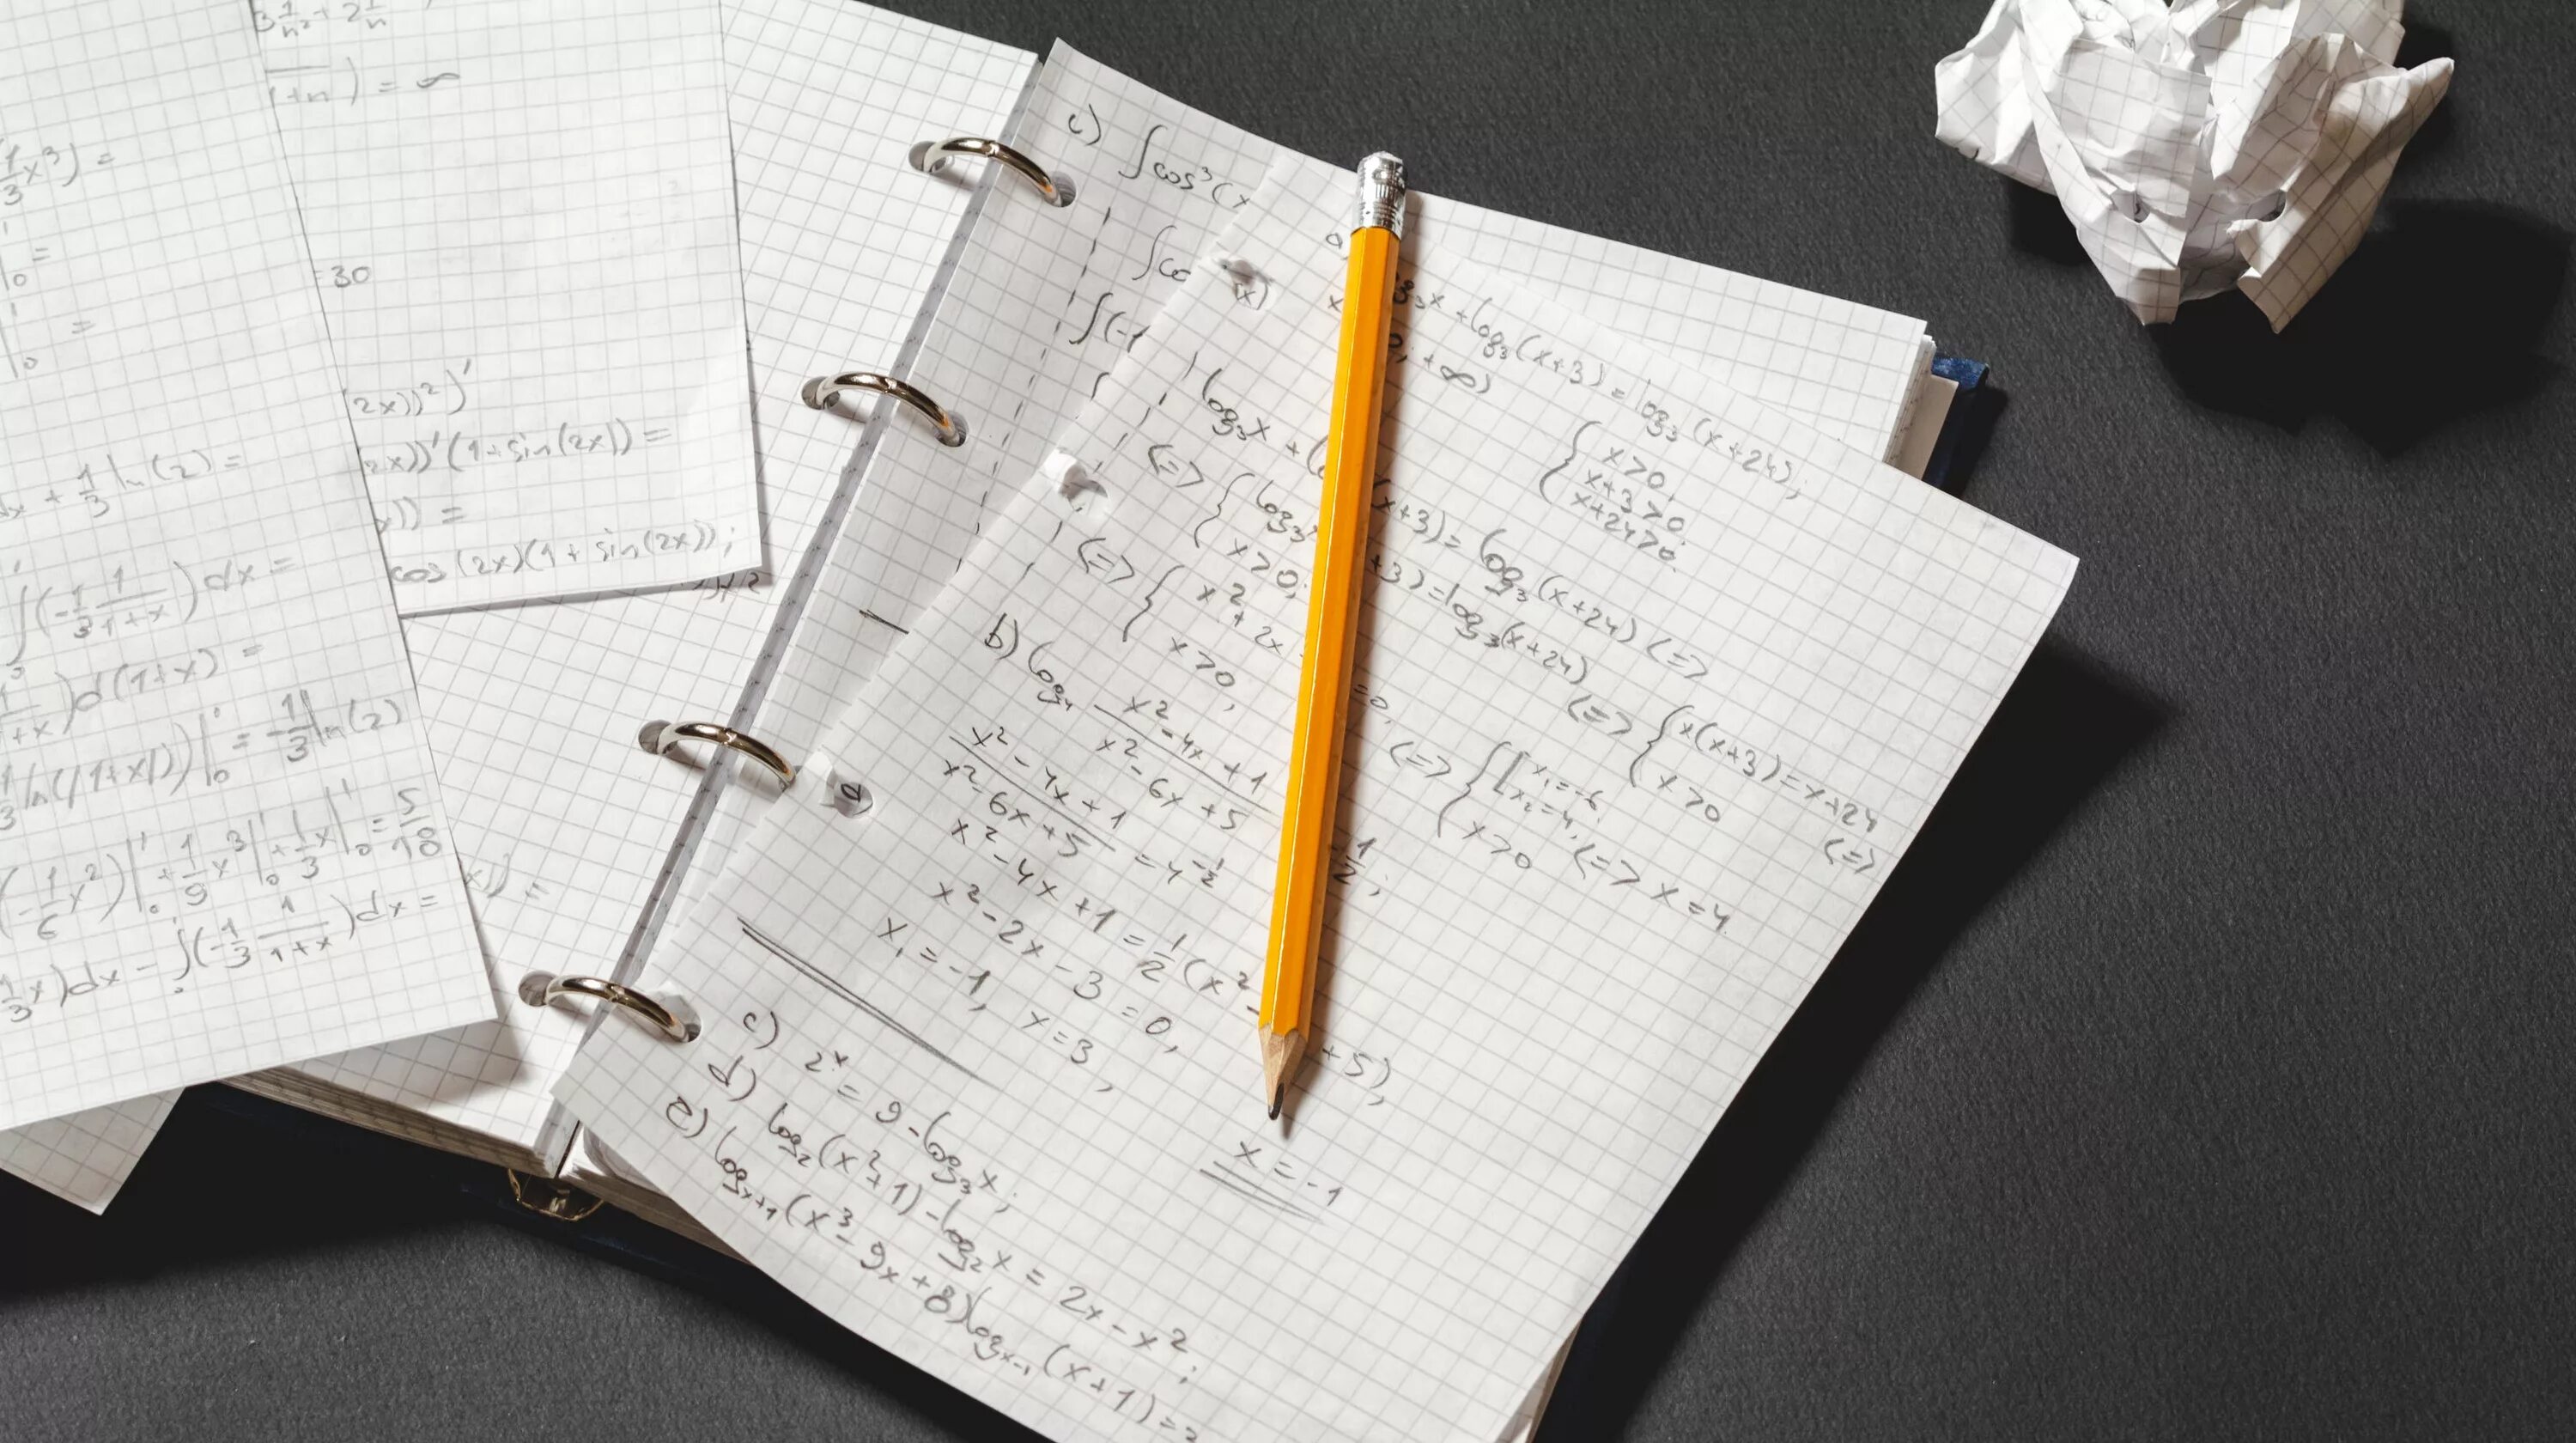 3 1/n² + 2 1/n
1+n) = ∞
1/3 x³) =
=
30
=
2x))²)'
2x))'(1+sin(2x)) =
x)) =
cos(2x)(1+sin(2x));
dx + 1/3 ln(2) =
∫(-1/3 1/(1+x))dx =
)d(1+x) =
1/3 ln(|1+x|))|₀¹ = -1/3 ln(2)
(-1/6 x²)|₀¹ + 1/9 x³|₀¹ + 1/3 x|₀¹ = 5/18
1/3 x)dx - ∫(-1/3 1/(1+x))dx =
x)) =
c) ∫cos³(x
∫co
∫(-1
x)
a
x + log₃(x+3) = log₃(x+24);
; +∞)
{ x>0,
x+3>0,
x+24>0.
log₃x + (x+3) = log₃(x+24) (=>
(=> { log₃ +3) = log₃(x+24)
x>0;
(=> { x(x+3) = x+24
x>0
(=>
(=> { x²+2x =0,
x>0,
(=> { [ x₁=-6
x₂=4,
x>0
(=> x=4.
b) log₄ (x²-4x+1)/(x²-6x+5) -1/2;
(x²-4x+1)/(x²-6x+5) = 4^(-1/2)
x²-4x+1 = 1/2(x²- +5),
x²-2x-3=0,
x₁=-1, x=3,
x=-1
c) 2ˣ = 9-log₃x;
d) log₂(x²+1)-log₂x = 2x-x²;
e) logₓ₊₁(x³-9x+8)logₓ₋₁(x+1)=3